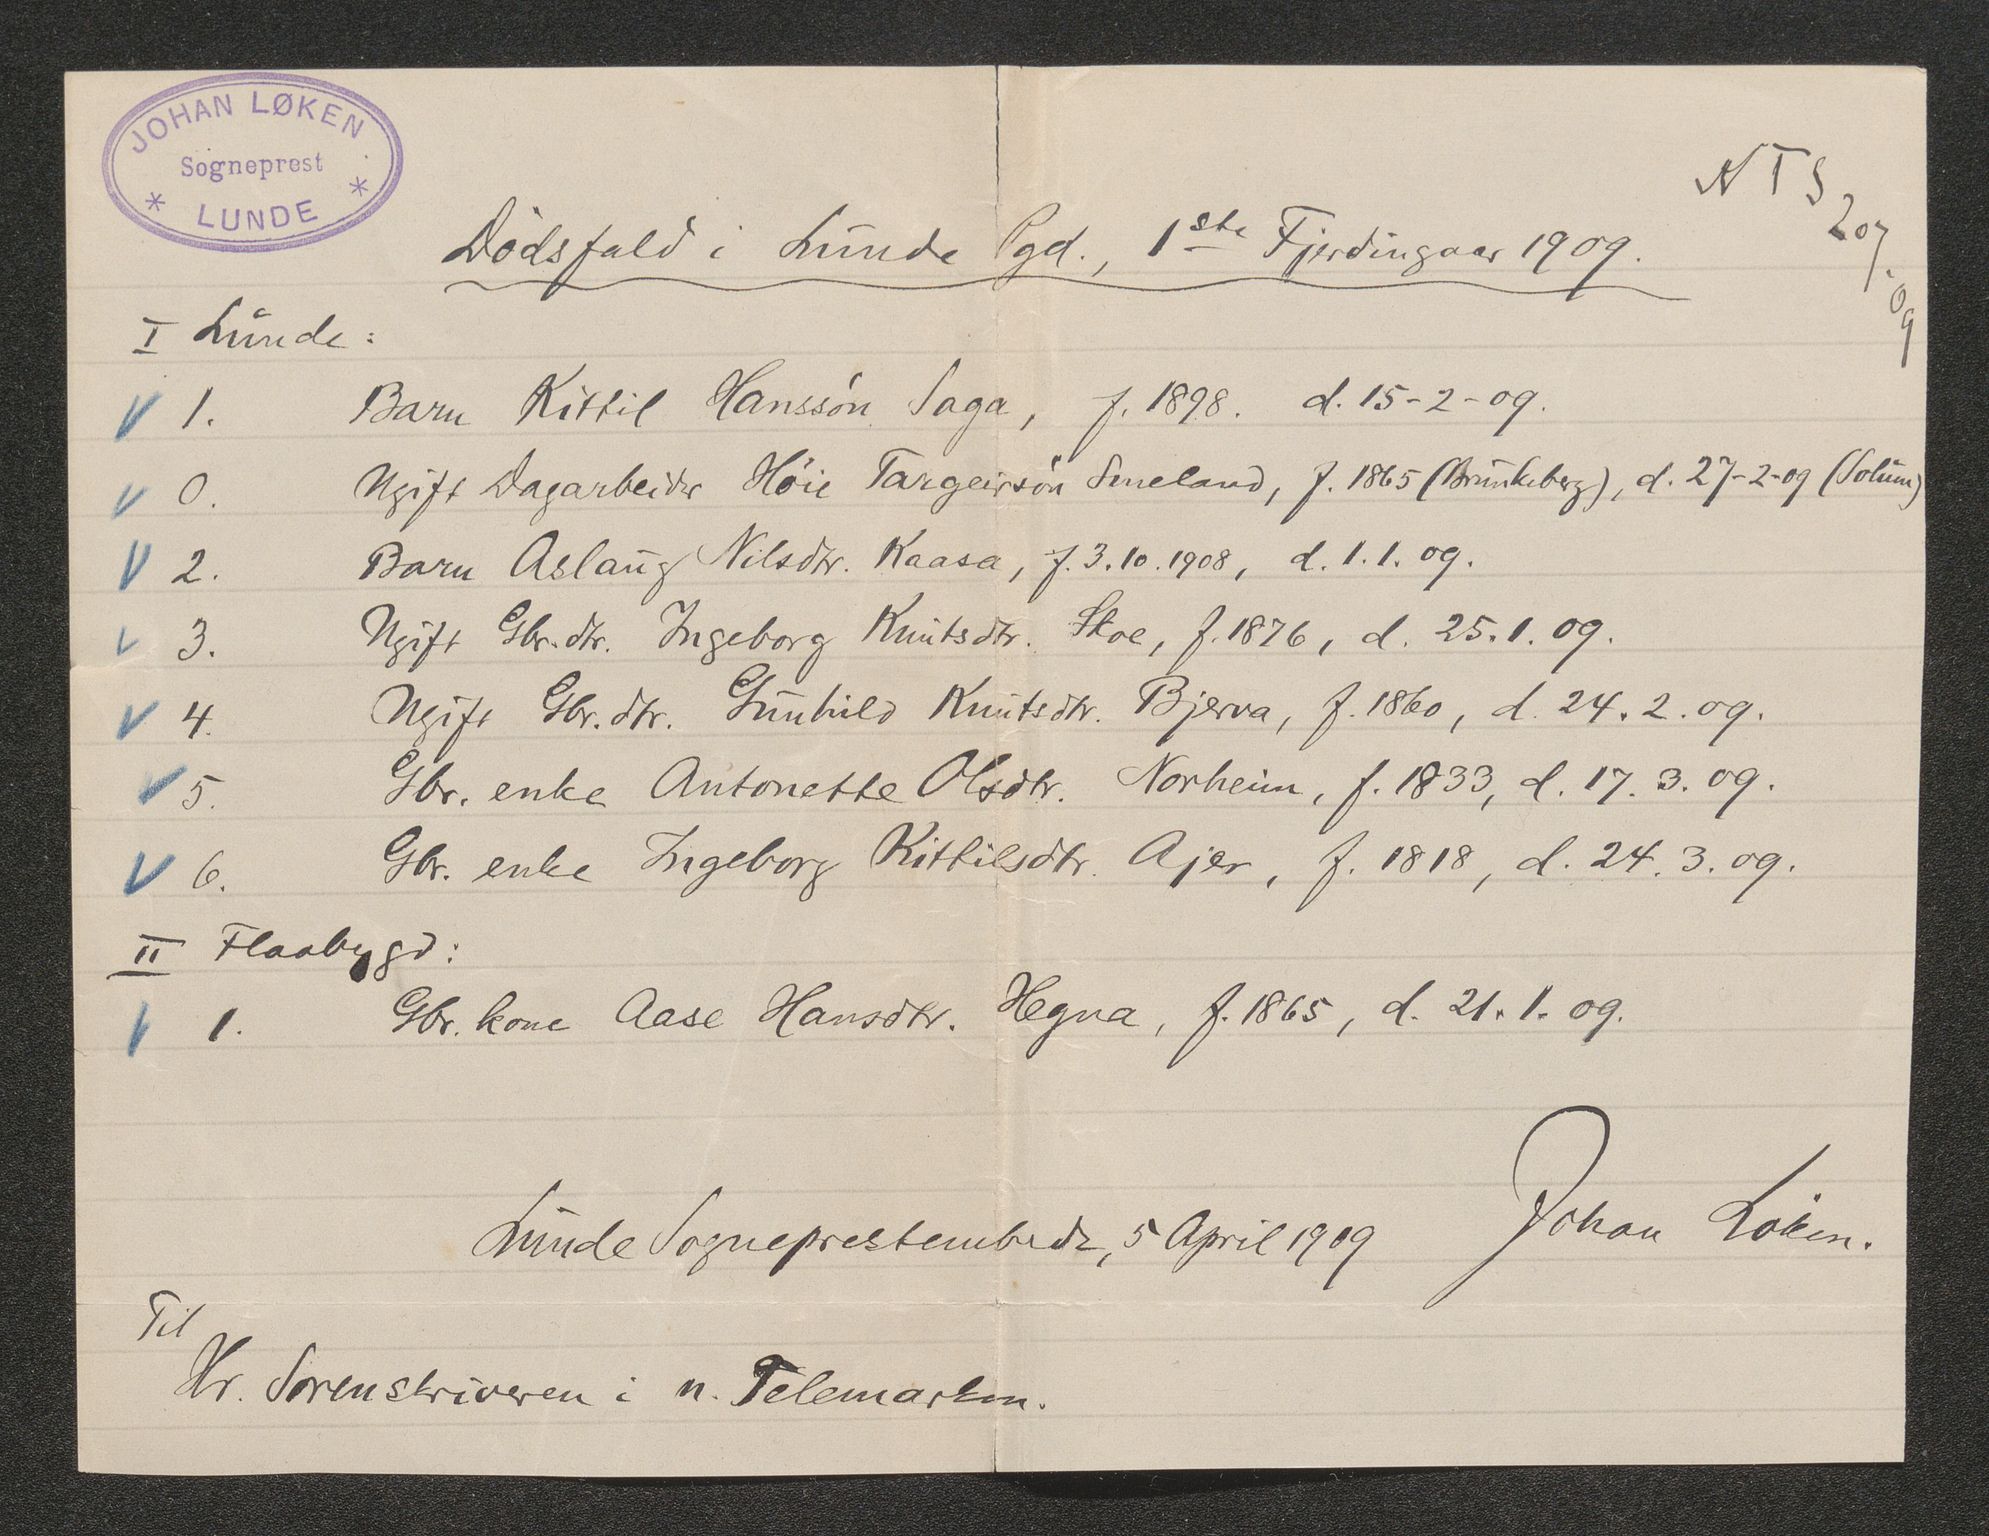 JOHAN LØKEN
Sogneprest
* LUNDE *
NTS
207.09
Dödsfald i Lunde Pgd., 1ste Fjerdingaar 1909.
I Lunde:
1. Barn Kittil Hanssön Saga, f. 1898. d. 15-2-09.
0. Ugift Dagarbeider Höie Targeirsön Smeland, f. 1865 (Brunkeberg), d. 27-2-09 (Solum)
2. Barn Aslaug Nilsdtr. Kaasa, f. 3.10.1908, d. 1.1.09.
3. Ugift Gbr.dtr. Ingeborg Knutsdtr. Skoe, f. 1876, d. 25.1.09.
4. Ugift Gbr.dtr. Gunhild Knutsdtr. Bjerva, f. 1860, d. 24.2.09.
5. Gbr. enke Antonette Olsdtr. Norheim, f. 1833, d. 17.3.09.
6. Gbr. enke Ingeborg Kittilsdtr. Ajer, f. 1818, d. 24.3.09.
II Flaabygd:
1. Gbr. kone Aase Hansdtr. Hegna, f. 1865, d. 21.1.09.
Lunde Sogneprestembede, 5 April 1909 Johan Löken.
Til
Hr. Sorenskriveren i n. Telemarken.